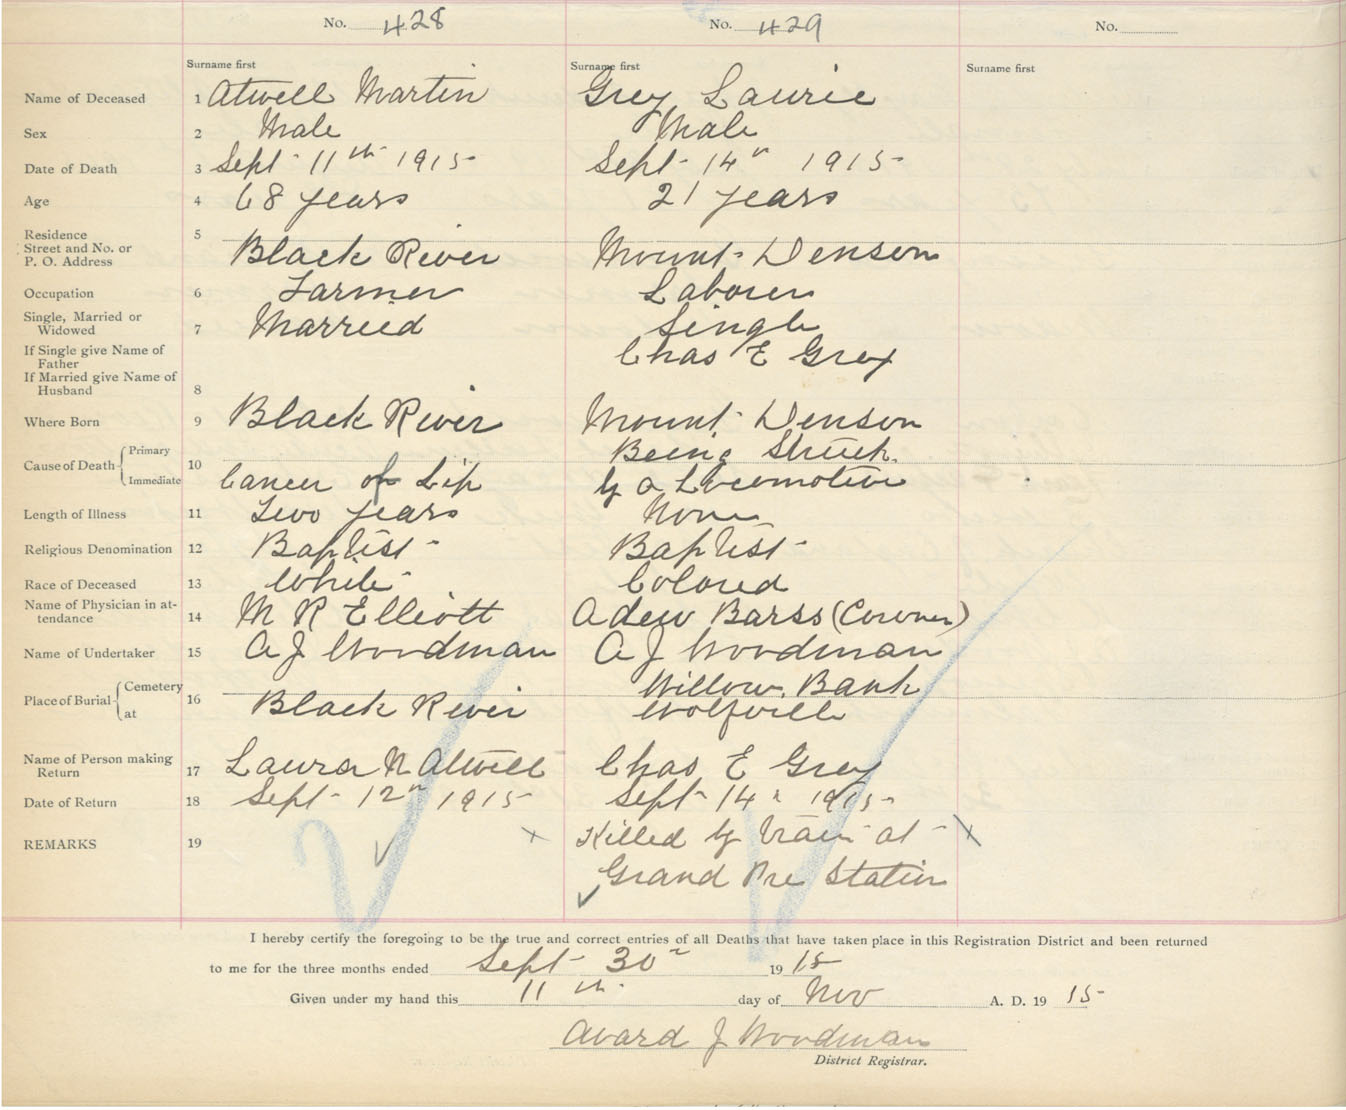 No. 428 No. 429 No.
Surname first Surname first Surname first
Name of Deceased 1 Atwell Martin Grey Laurie
Sex 2 Male Male
Date of Death 3 Sept 11th 1915 Sept 14th 1915
Age 4 68 years 21 years
Residence 5
Street and No. or
P. O. Address Black River Mount Denson
Occupation 6 Farmer Laborer
Single, Married or
Widowed 7 Married Single
If Single give Name of
Father Chas E Grey
If Married give Name of
Husband 8
Where Born 9 Black River Mount Denson
Cause of Death Primary 10 Being Struck
Immediate Cancer of Lip by a Locomotive
Length of Illness 11 Two years None
Religious Denomination 12 Baptist Baptist
Race of Deceased 13 White Colored
Name of Physician in at-
tendance 14 M R Elliott Barss (Coroner)
Name of Undertaker 15 A J Woodman A J Woodman
Place of Burial Cemetery 16 Willow Bank
at Black River Wolfville
Name of Person making
Return 17 Laura N Atwell Chas E Grey
Date of Return 18 Sept 12th 1915 Sept 14th 1915
REMARKS 19 Killed by train at
Grand Pre Station
I hereby certify the foregoing to be the true and correct entries of all Deaths that have taken place in this Registration District and been returned
to me for the three months ended Sept 30th 1915
Given under my hand this 11th day of Nov A. D. 1915
Avard J Woodman
District Registrar.